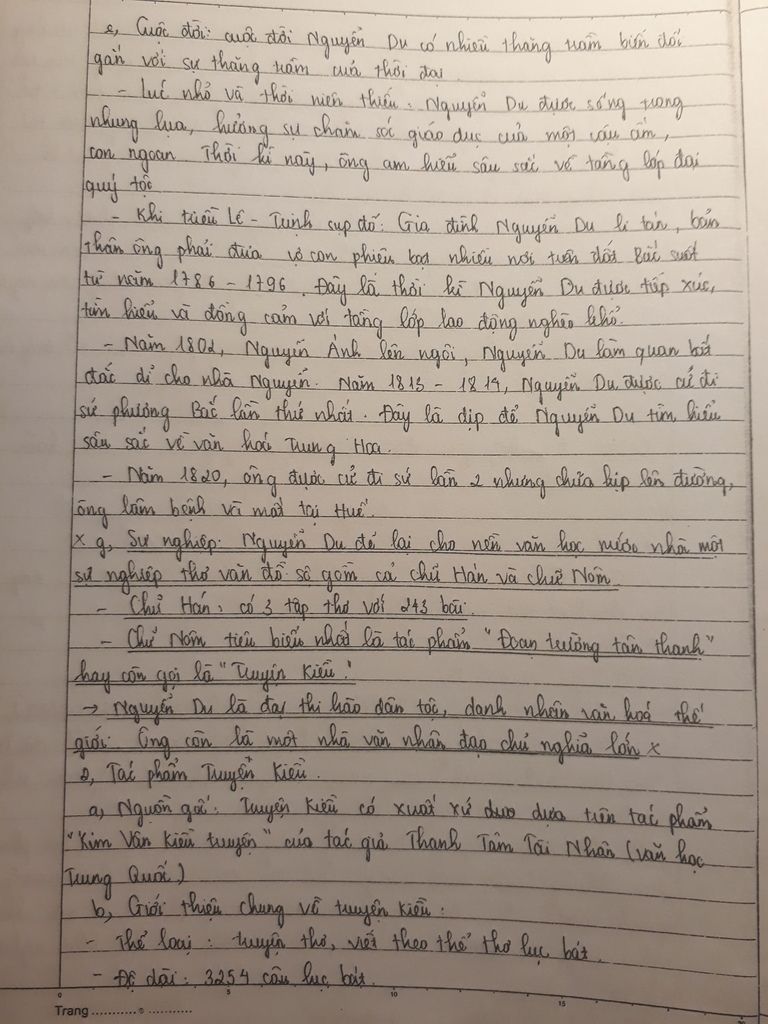 e, Cuộc đời: cuộc đời Nguyễn Du có nhiều thăng trầm biến đổi
gắn với sự thăng trầm của thời đại.
- Lúc nhỏ và thời niên thiếu: Nguyễn Du được sống trong
nhung lụa, hưởng sự chăm sóc giáo dục của một cậu ấm,
con ngoan. Thời kì này, ông am hiểu sâu sắc về tầng lớp đại
quý tộc
- Khi triều Lê - Trịnh sụp đổ: Gia đình Nguyễn Du li tán, bản
thân ông phải đưa vợ con phiêu bạt nhiều nơi trên đất Bắc suốt
từ năm 1786 - 1796. Đây là thời kì Nguyễn Du được tiếp xúc,
tìm hiểu và đồng cảm với tầng lớp lao động nghèo khổ.
- Năm 1802, Nguyễn Ánh lên ngôi, Nguyễn Du làm quan bất
đắc dĩ cho nhà Nguyễn. Năm 1813 - 1814, Nguyễn Du được cử đi
sứ phương Bắc lần thứ nhất. Đây là dịp để Nguyễn Du tìm hiểu
sâu sắc về văn hoá Trung Hoa.
- Năm 1820, ông được cử đi sứ lần 2 nhưng chưa kịp lên đường,
ông lâm bệnh và mất tại Huế.
x g, Sự nghiệp: Nguyễn Du để lại cho nền văn học nước nhà một
sự nghiệp thơ văn đồ sộ gồm cả chữ Hán và chữ Nôm
- Chữ Hán: có 3 tập thơ với 243 bài.
- Chữ Nôm tiêu biểu nhất là tác phẩm "Đoạn trường tân thanh"
hay còn gọi là "Truyện Kiều".
→ Nguyễn Du là đại thi hào dân tộc, danh nhân văn hoá thế
giới. Ông còn là một nhà văn nhân đạo chủ nghĩa lớn x
2, Tác phẩm Truyện Kiều.
a, Nguồn gốc: Truyện Kiều có xuất xứ dựa trên tác phẩm
"Kim Vân Kiều truyện" của tác giả Thanh Tâm Tài Nhân (văn học
Trung Quốc)
b, Giới thiệu chung về truyện Kiều:
- Thể loại: truyện thơ, viết theo thể thơ lục bát.
- Độ dài: 3254 câu lục bát.
0 5 10 15 20
Trang